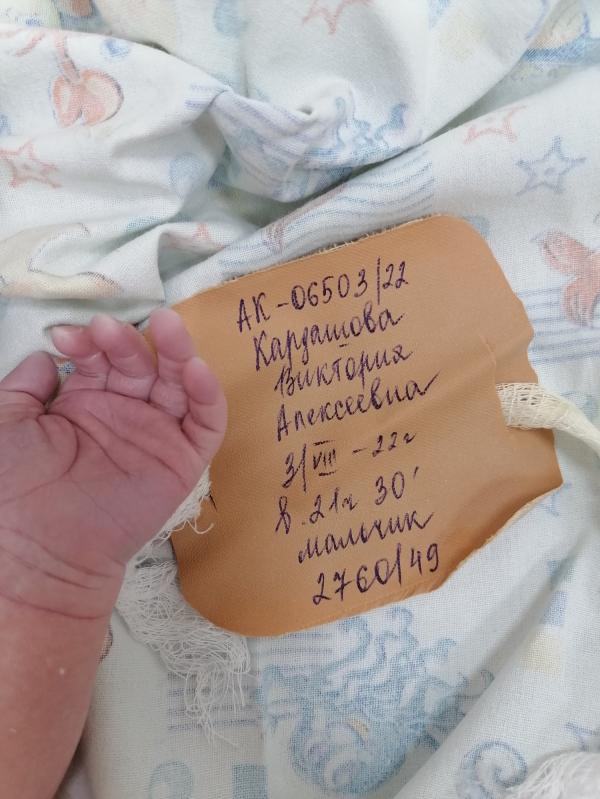 АК-06503/22
Кардашова
Виктория
Алексеевна
3/VIII-22г
в. 21ч 30'
мальчик
2760/49